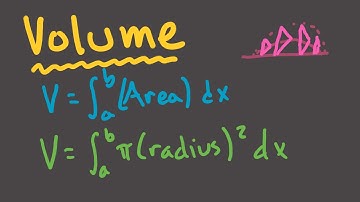 Volume
V = ∫ₐᵇ (Area) dx
V = ∫ₐᵇ π(radius)² dx